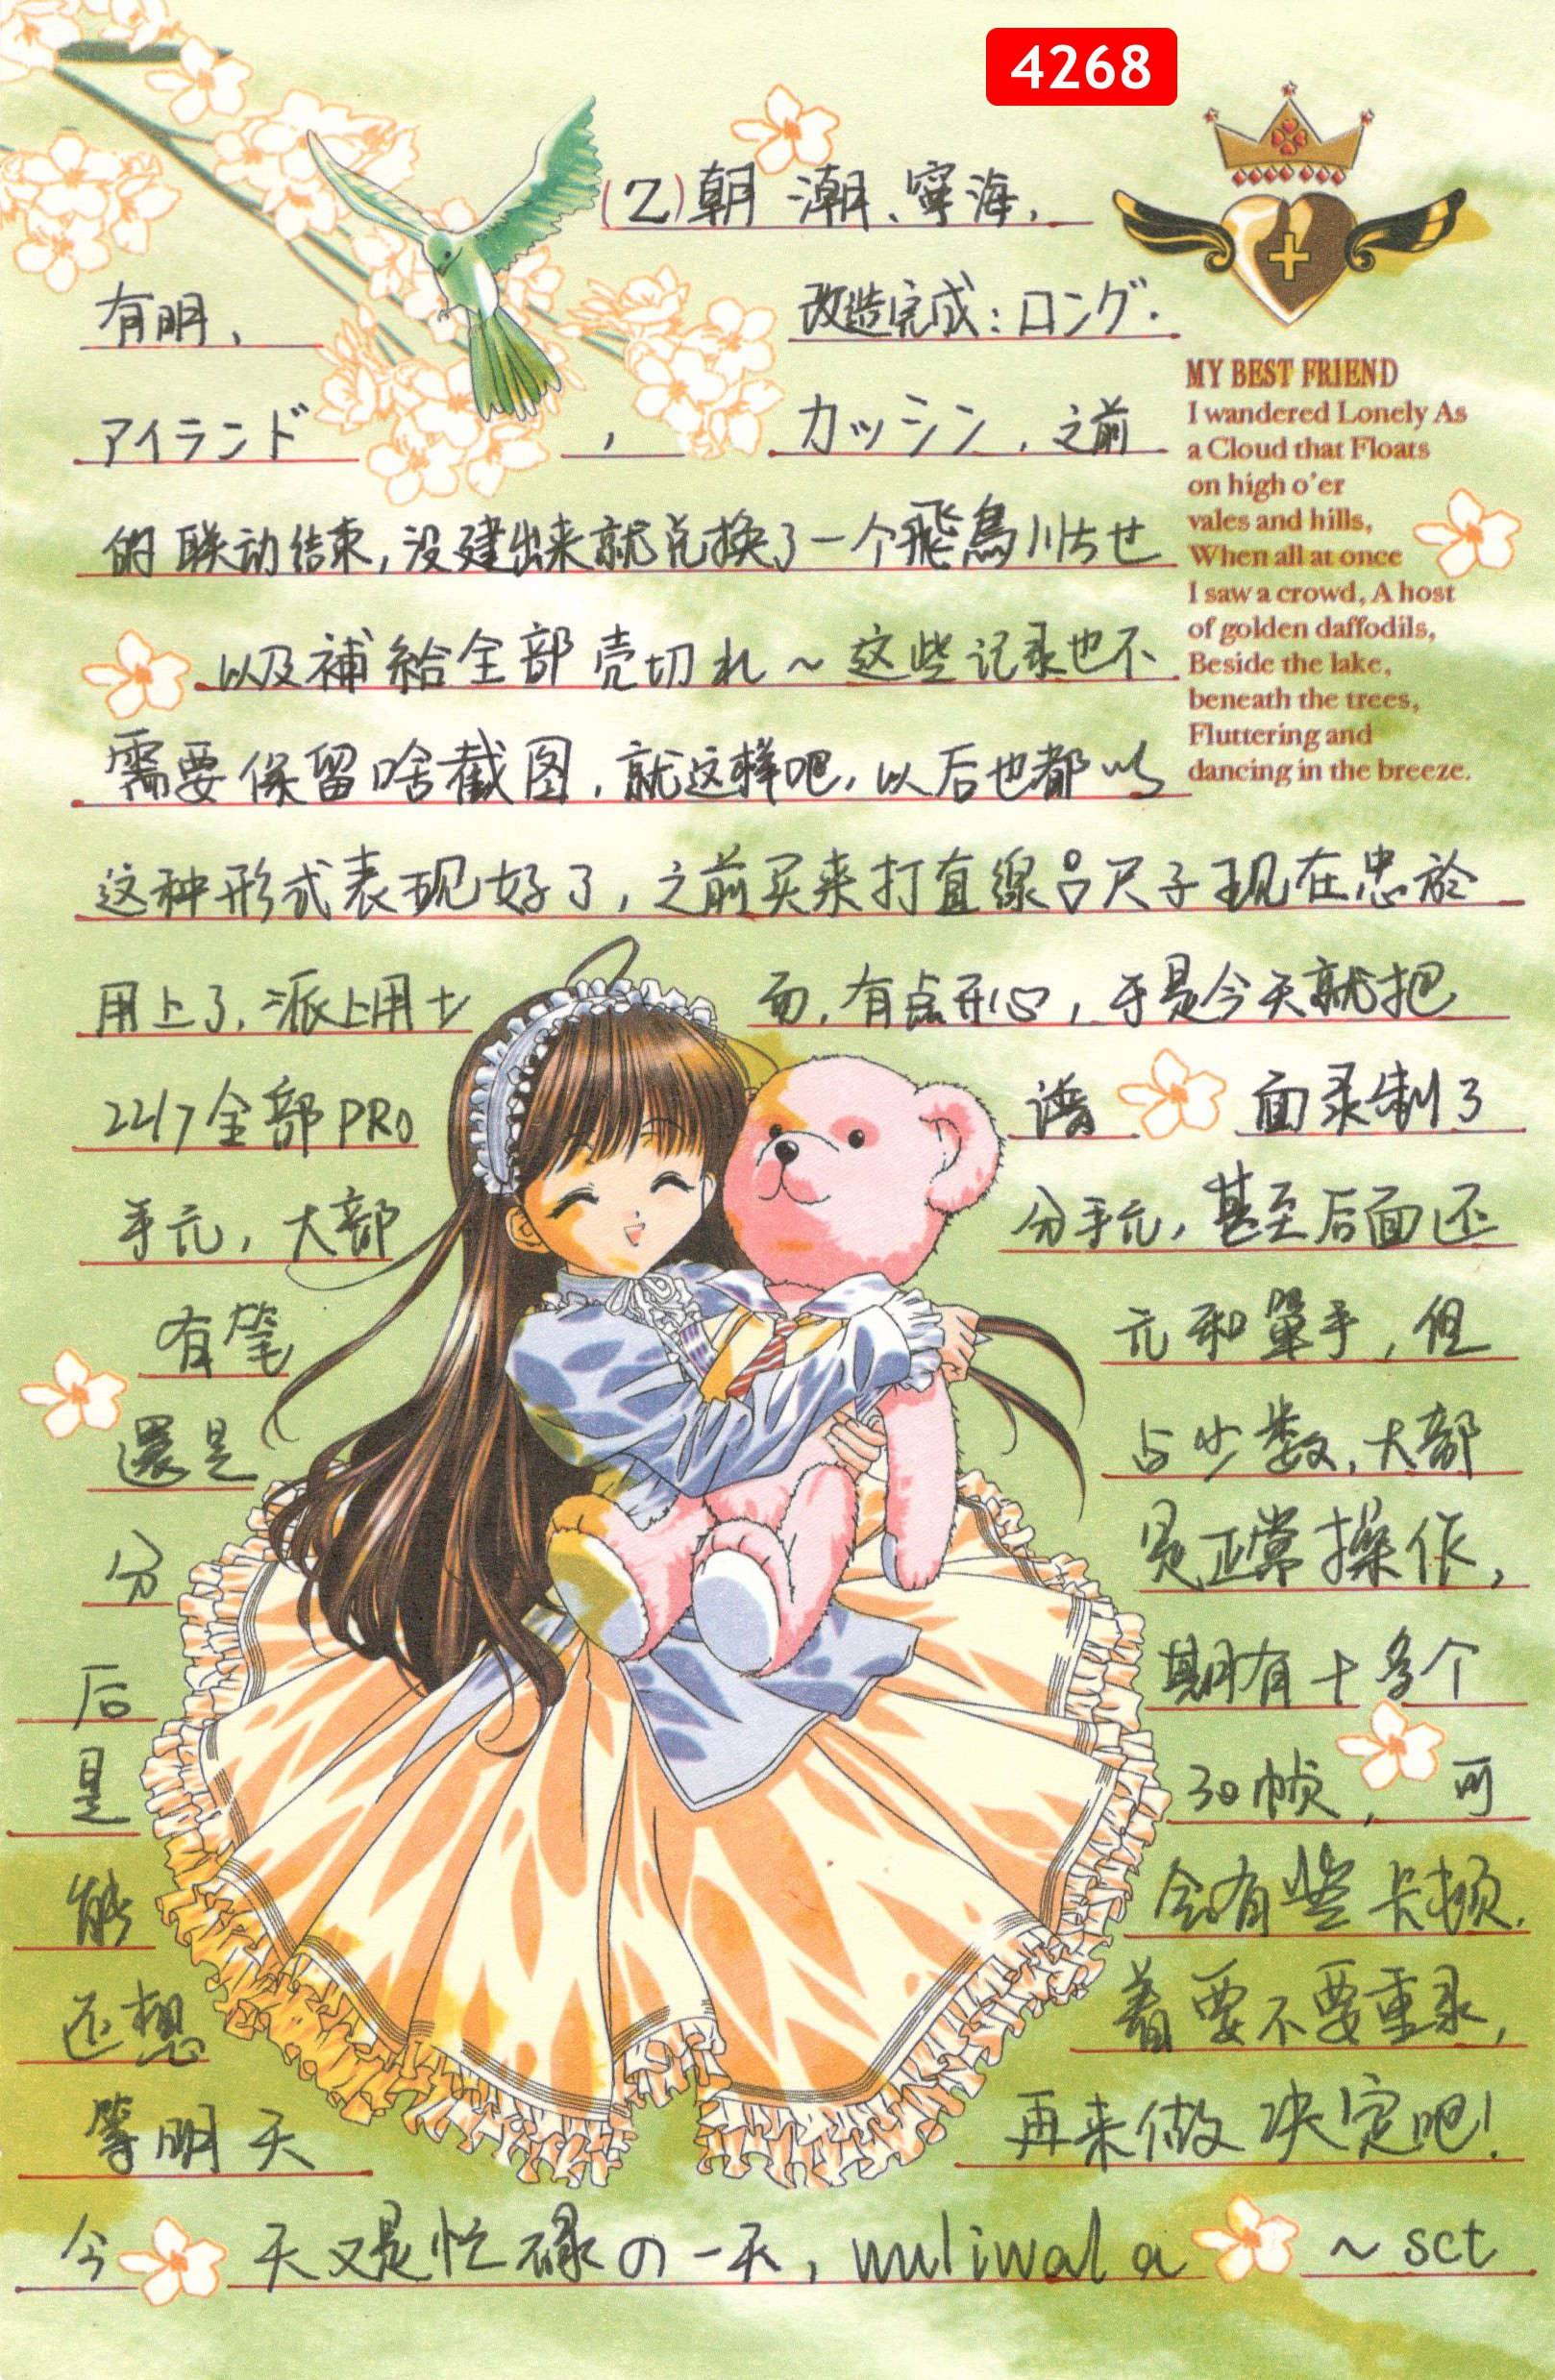 4268
(2)朝潮、寧海、
有明、 改造完成：ロング·
アイランド , カッシン，之前
的联动结束,没建出来就兑换了一个飛鳥川ちせ
以及補給全部売切れ~这些记录也不
需要保留啥截图，就这样吧，以后也都以
这种形式表现好了，之前买来打直線吕尺子现在忠於
用上了，派上用士 而，有点开心，于是今天就把
22/7全部PRO 谱面录制了
手元，大部 分手元，甚至后面还
有筆 元和單手，但
還是 占少数，大部
分 是正常操作，
后 期有十多个
是 30帧，可
能 会有些卡顿，
还想 着要不要重录，
等明天 再来做决定吧！
今天又是忙碌の一天，wuliwala ~ sct
MY BEST FRIEND
I wandered Lonely As
a Cloud that Floats
on high o'er
vales and hills,
When all at once
I saw a crowd, A host
of golden daffodils,
Beside the lake,
beneath the trees,
Fluttering and
dancing in the breeze.